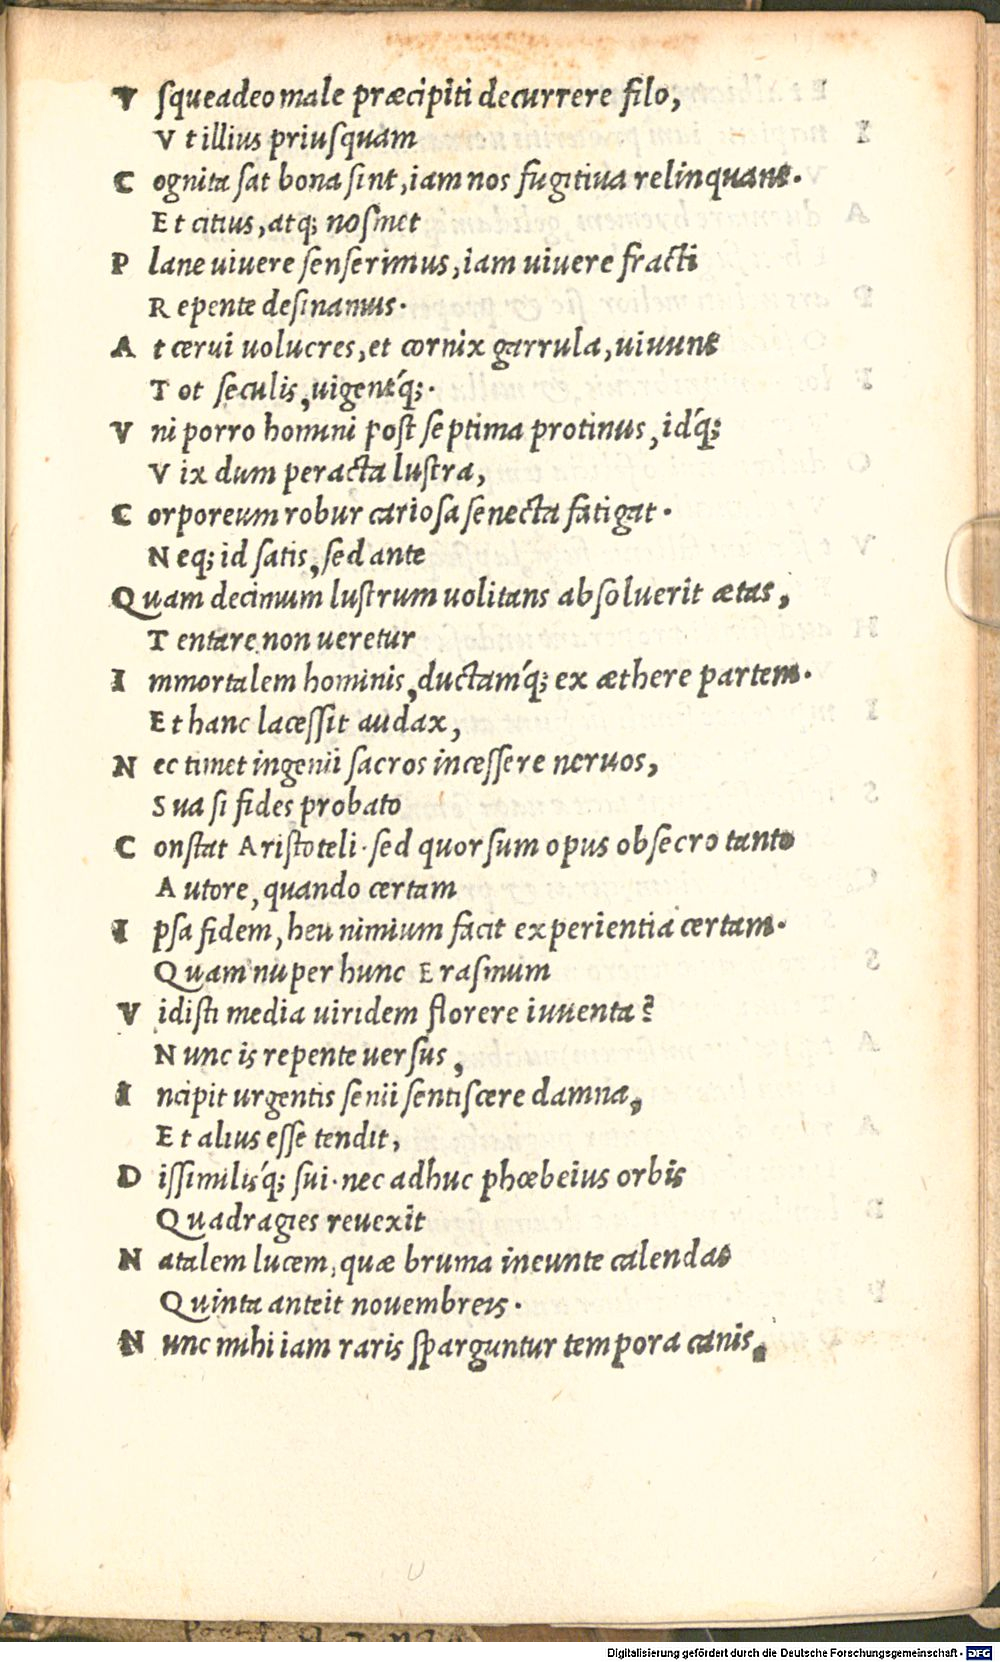 V sque adeo male præcipiti decurrere filo,
V t illius priusquam
C ognita sat bona sint, iam nos fugitiua relinquant.
E t citius, atq; nosmet
P lane uiuere senserimus, iam uiuere fracti
R epente desinamus.
A t cerui uolucres, et cornix garrula, uiuunt
T ot seculis, uigent´q;.
V ni porro homini post septima protinus, id´q;
V ix dum peracta lustra,
C orporeum robur cariosa senecta fatigat.
N eq; id satis, sed ante
Q uam decimum lustrum uolitans absoluerit ætas,
T entare non ueretur
I mmortalem hominis, ductam´q; ex æthere partem.
E t hanc lacessit audax,
N ec timet ingenii sacros incessere neruos,
S ua si fides probato
C onstat Aristoteli. sed quorsum opus obsecro tanto
A utore, quando certam
I psa fidem, heu nimium facit experientia certam.
Q uam nuper hunc Erasmum
V idisti media uiridem florere iuuenta?
N unc is repente uersus,
I ncipit urgentis senii sentiscere damna,
E t alius esse tendit,
D issimilis´q; sui. nec adhuc phœbeius orbis
Q uadragies reuexit
N atalem lucem, quæ bruma ineunte calendas
Q uinta anteit nouembreis.
N unc mihi iam raris sparguntur tempora canis,
Digitalisierung gefördert durch die Deutsche Forschungsgemeinschaft - DFG